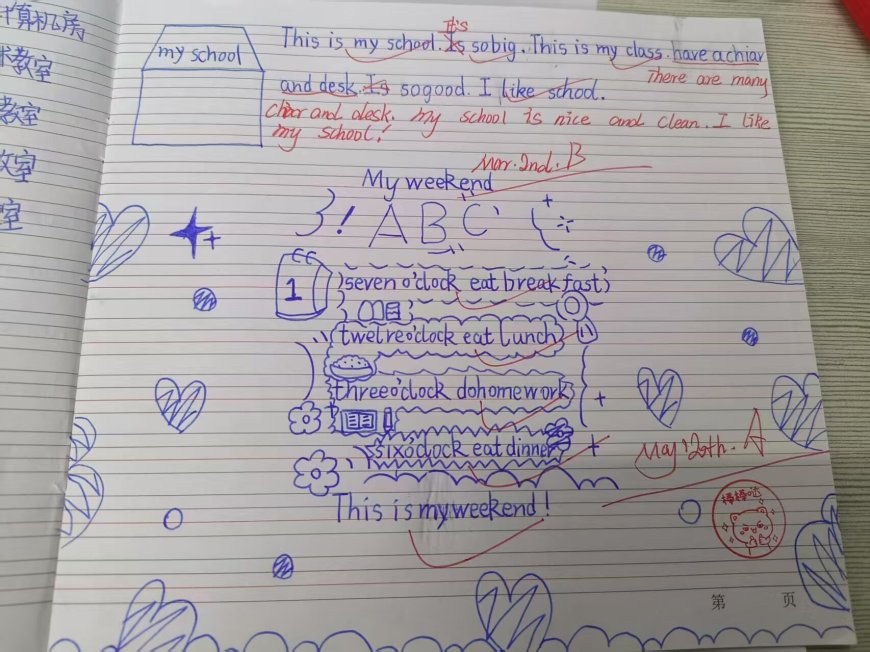 计算机房
术教室
教室
教室
室
my school
It's
This is my school. Is sobig. This is my class. have a chiar
There are many
and desk. Is sogood. I like school.
chair and desk. my school is nice and clean. I like
my school!
Mar. 2nd. B
My weekend
! A B C
1
seven o'clock eat breakfast
twelreo'clock eat lunch
threeo'clock dohomework
sixo'clock eat dinner
May 20th. A
This is myweekend!
棒棒哒
第 页